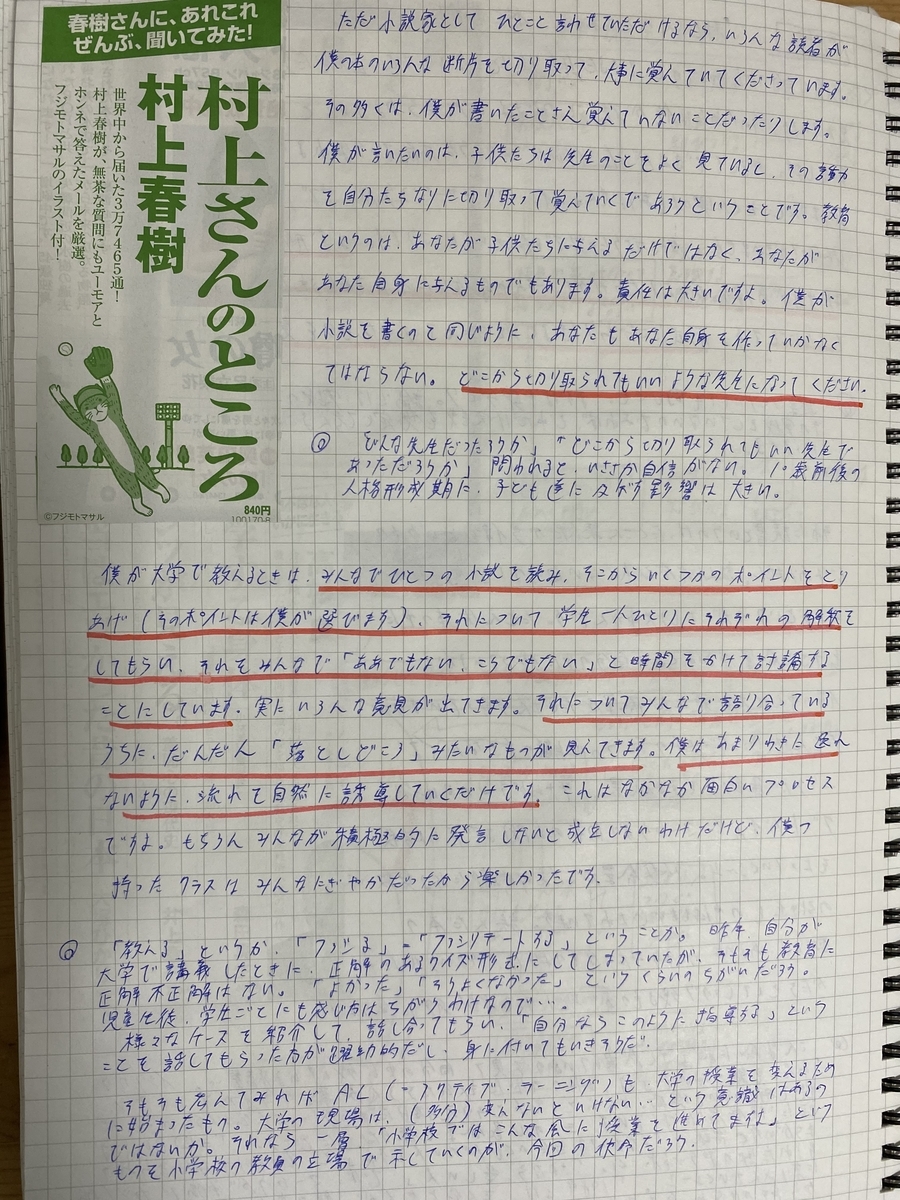 春樹さんに、あれこれ
ぜんぶ、聞いてみた!
村上さんのところ
村上春樹
世界中から届いた3万7465通!
村上春樹が、無茶な質問にもユーモアと
ホンネで答えたメールを厳選。
フジモトマサルのイラスト付!
©フジモトマサル
840円
100170-8
ただ小説家として ひとこと言わせていただけるなら、いろんな読者が
僕の本のいろんな断片を切り取って、大事に覚えていてくださっています。
その多くは、僕が書いたことさえ覚えていないことだったりします。
僕が言いたいのは、子供たちは先生のことをよく見ているし、その言動
を自分たちなりに切り取って覚えていくであろうということです。教育
というのは、あなたが子供たちに与えるだけではなく、あなたが
あなた自身に与えるものでもあります。責任は大きいですよ。僕が
小説を書くのと同じように、あなたもあなた自身を作っていかなく
てはならない。どこから切り取られてもいいような先生になってください。
◎ 「どんな先生だったろうか」「どこから切り取られてもいい先生で
あっただろうか」問われると、いささか自信がない。10歳前後の
人格形成期に、子ども達に及ぼす影響は大きい。
僕が大学で教えるときは、みんなでひとつの小説を読み、そこからいくつかのポイントをとり
あげ(そのポイントは僕が選びます)、それについて学生一人ひとりにそれぞれの解釈を
してもらい、それをみんなで「ああでもない、こうでもない」と時間をかけて討論する
ことにしています。実にいろんな意見が出てきます。それについてみんなで語り合っている
うちに、だんだん「落としどころ」みたいなものが見えてきます。僕はあまりわきに逸れ
ないように、流れを自然に誘導していくだけです。これはなかなか面白いプロセス
ですよ。もちろんみんなが積極的に発言しないと成立しないわけだけど、僕の
持ったクラスはみんなにぎやかだったから楽しかったです。
◎ 「教える」というか、「ファシる」=「ファシリテートする」ということか。昨年 自分が
大学で講義したときに、正解のあるクイズ形式にしてしまっていたが、そもそも教育に
正解不正解はない。「よかった」「そうよくなかった」というくらいのちがいだろう。
児童生徒、学生ごとにも感じ方はちがうわけなので…。
様々なケースを紹介して、話し合ってもらい、「自分ならこのように指導する」という
ことを話してもらった方が躍動的だし、身に付いてもいきそうだ。
そもそも広んてみれば AL(=アクティブ・ラーニング)も、大学の授業を変えるため
に始まったもの。大学の現場は、(多分)変えないといけない…という意識はあるの
ではないか。それなら一層「小学校ではこんな風に授業を進めてますよ」という
ものを小学校の教員の立場で示していくのが、今回の仕事だろう。